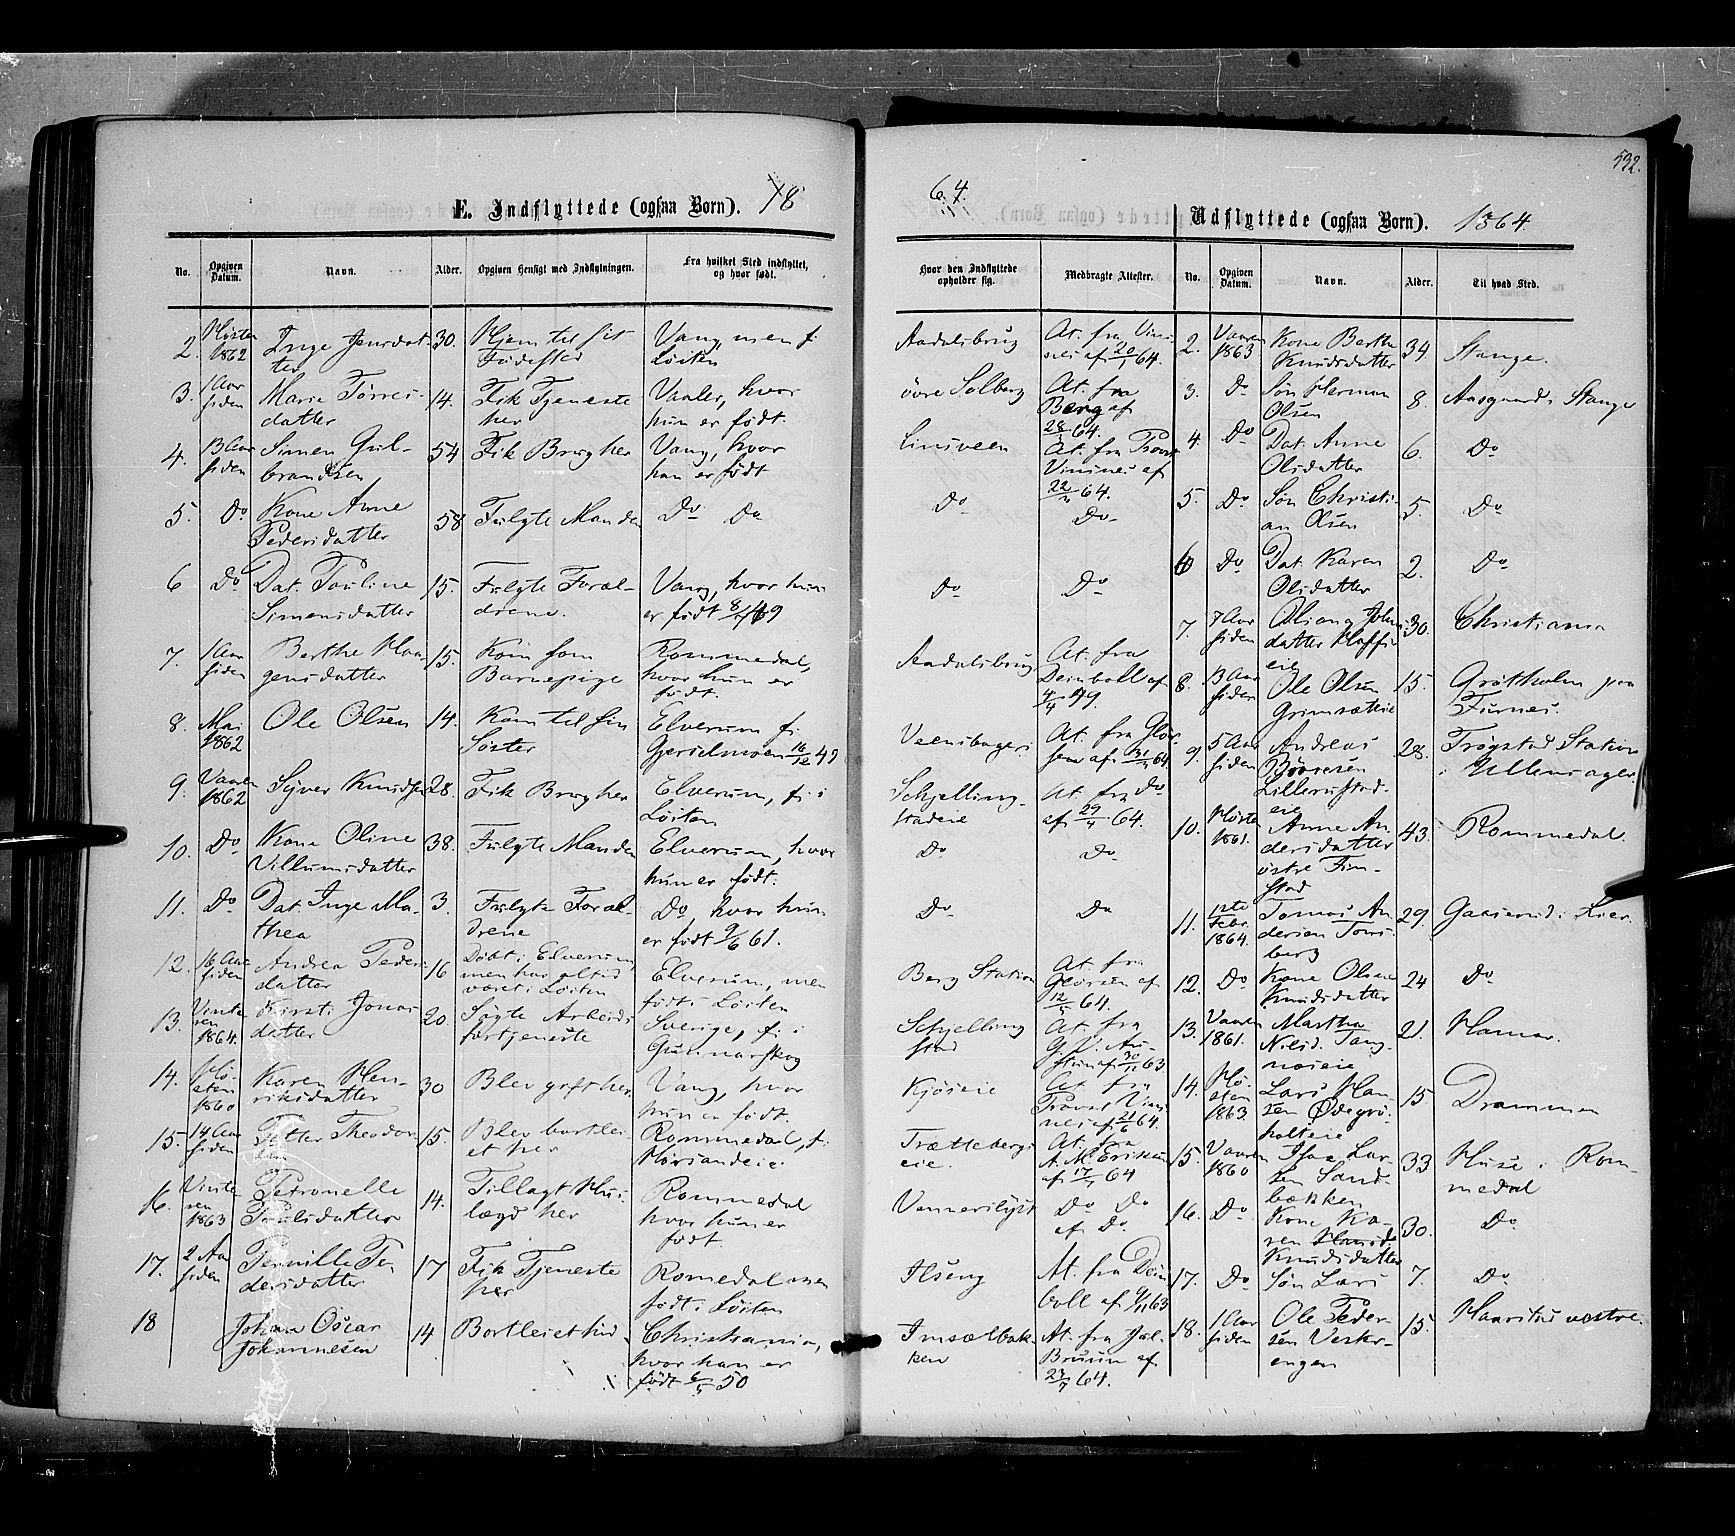 532.
E. Indflyttede (ogsaa Børn). 18
64
Udflyttede (ogsaa Børn). 1864.
No. Opgiven Datum. Navn. Alder. Opgiven Hensigt med Indflytningen. Fra hvilket Sted indflyttet, og hvor født.
Hvor den Indflyttede opholder sig. Medbragte Attester. No. Opgiven Datum. Navn. Alder. Til hvad Sted.
2. Høsten 1862 Inge Jensdatter 30. Hjem til sit Fødested Vang men f. Løiten
Aadalsbrug At. fra
3. 1 Aar siden Marie Tørresdatter 14. Fik Tjeneste her Vaaler, hvor hun er født.
øvre Solberg At. fra Berg af 28/ 64.
4. 13 Aar siden Simen Gulbrandsen 54 Fik Brug her Vang, hvor han er født
Linsveen At. fra af 22/ 64.
5. Do Kone Anne Pedersdatter 58 Fulgte Manden Do Do
Do Do
6 Do Dat. Pauline Simensdatter 15. Fulgte Forældrene. Vang, hvor hun er født 49
Do Do
7. 1 Aar siden Berthe Haagensdatter 15. Kom som Barnepige Rommedal, hvor hun er født.
Aadalsbrug At. fra Deinboll af 4/4 49.
8. Mai 1862 Ole Olsen 14. Kom til sin Søster Elverum f. 16/12 49
At. fra af 64
9. Vaaren 1862 Syver Knudsen 28. Fik Brug her Elverum, f. i Løiten
Schjellingstadeie At. fra Do af 29/4 64.
10. Do Kone Oline Villumsdatter 38. Fulgte Manden Elverum, hvor hun er født.
Do Do
11. Do Dat. Inge Mathea 3. Fulgte Forældrene Do, hvor hun er født 9/6 61.
Do Do
12. 16 Aar siden Andrea Pedersdatter 16 Døbt i Elverum, men har altid været i Løiten Elverum, men født i Løiten
Berg Station At. fra af 12/ 64.
13. Vinteren 1864. Kirsti Jonasdatter 20. Søgte Arbeidsfortjeneste Sverige, f. i Gunnarskog
Schjellingstad At. fra af 63
14. Høsten 1860 Karen Henriksdatter 30 Blev gift her Vang, hvor hun er født.
Kjøseie At. fra Provst af 21/6 64.
15. 14 Aar siden Petter Theodor 15. Blev bortleiet her Rommedal, f.
Trættebergseie. At. fra A. M. Eriksen af 64
16. Vinteren 1863 Petronelle Poulsdatter 14. Tillagt Huslægd her Rommedal hvor hun er født.
Do Do af Do.
17. 2 Aar siden Pernille Pedersdatter 17 Fik Tjeneste her Romedal men født i Løiten
Ilseng At. fra Deinboll af 63
18 Johan Oscar Johannesen 14 Bortleiet hid Christiania, hvor han er født 50
Imsælbakken At. fra Jul. Bruun af 23/7 64.
2. Vaaren 1863 Kone Berthe Knudsdatter 34. Stange.
3. Do Søn Herman Olsen 8. Aasgaard i Stange
4. Do Dat. Anne Olsdatter 6. Do
5. Do Søn Christian Olsen 5. Do
6 Do Dat. Karen Olsdatter 2. Do
7. 7 Aar siden 30. Christiania
8. 13 Aar siden Ole Olsen Grimsæteie 15. Grøtholm paa Furnes.
9. 5 Aar siden Andreas 28. Trøgstad Station i Ullensager
10. Høsten 1861. Anne Andersdatter østre Finstad 43. Rommedal.
11. Febr. 1864. Tomas Andersen 29. i Lier.
12. Do Kone Oline Knudsdatter 24 Do
13. Vaaren 1861. Martha Nilsd. 21. Hamar.
14. Høsten 1863 Lars Hansen 15 Drammen
15. Vaaren 1860 Isaa Larsen Sandbækken 33 Huse i Rommedal
16. Do Kone Karen Knudsdatter 30. Do
17. Do Søn Lars 7. Do
18. 1 Aar siden Ole Pedersen Vesterengen 15. Haarstad vestre.